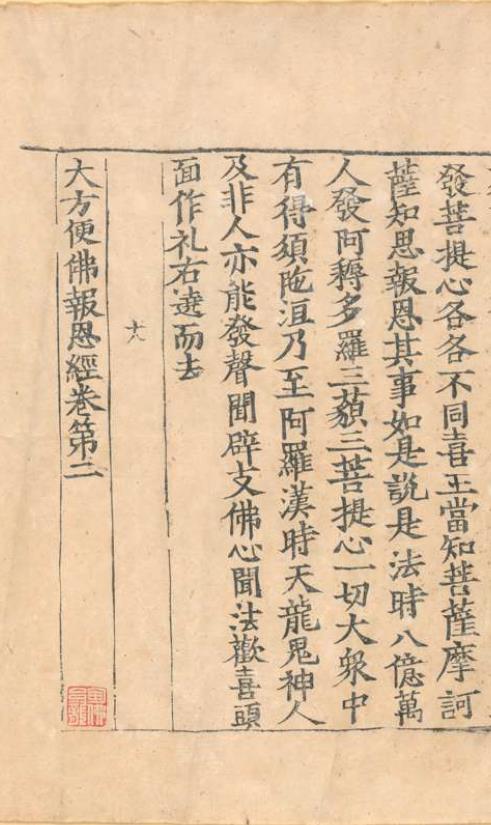 發菩提心各各不同喜王當知菩薩摩訶
薩知恩報恩其事如是說是法時八億萬
人發阿耨多羅三藐三菩提心一切大衆中
有得須陁洹乃至阿羅漢時天龍鬼神人
及非人亦能發聲聞辟支佛心聞法歡喜頭
面作礼右遶而去
十八
大方便佛報恩經卷第二